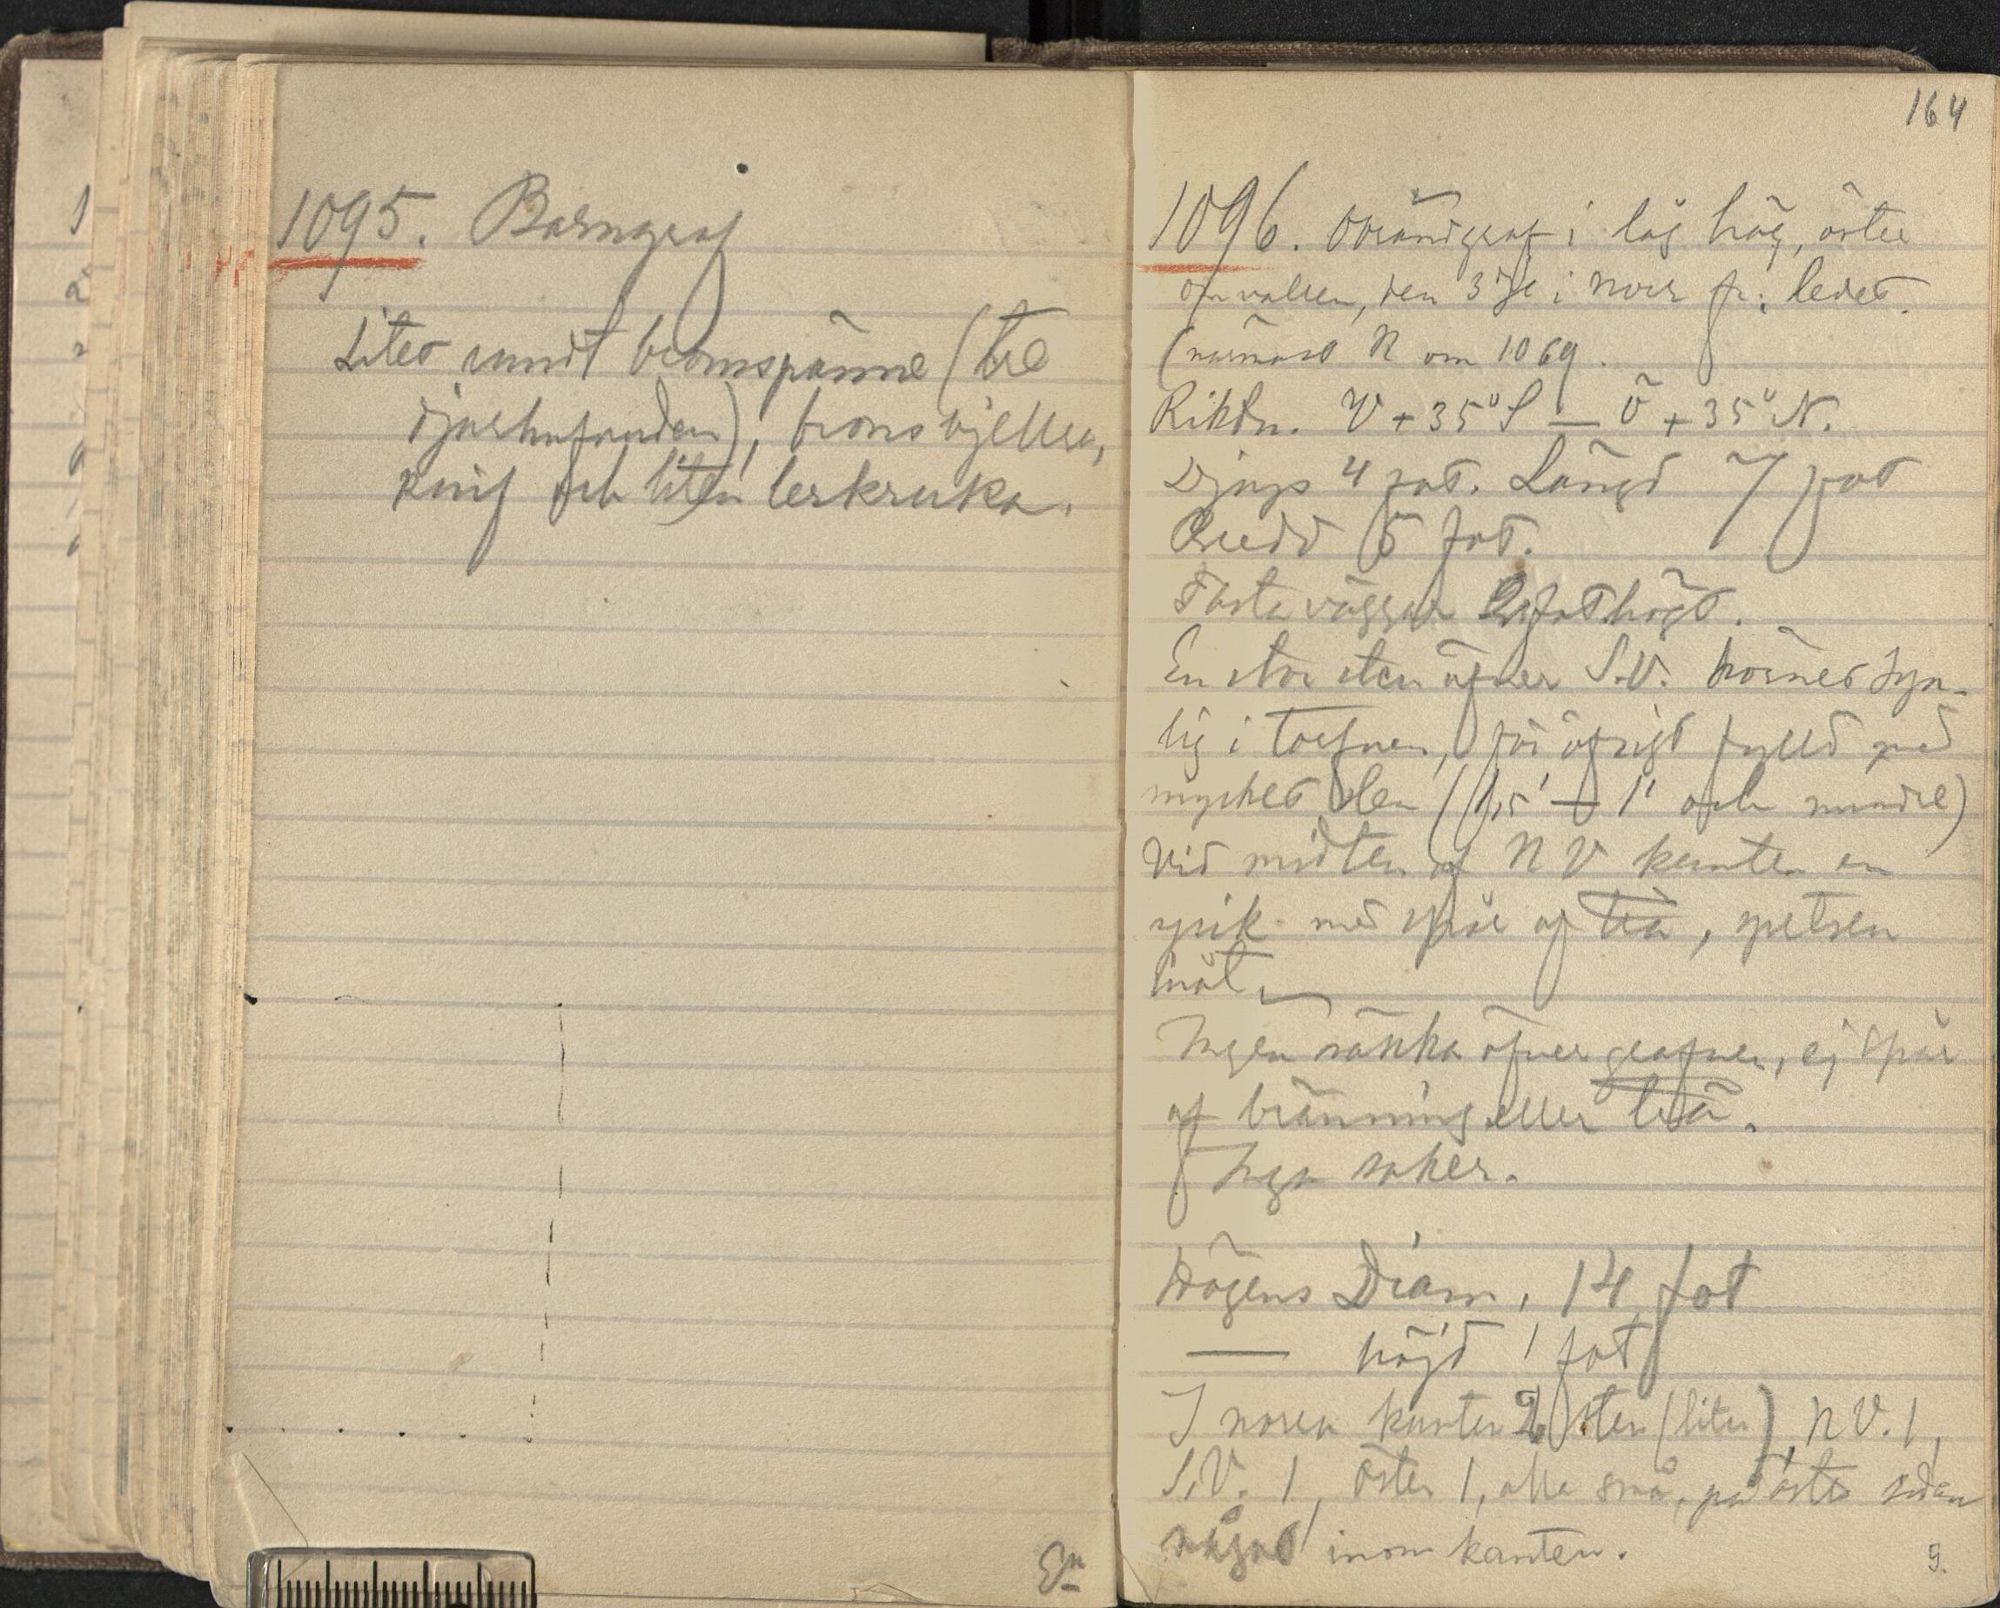 1095. Barngraf
Litet rundt bronsspänne (tre
djurhufvuden), bronsbjellra,
knif och liten lerkruka.
164
1096. Obränd graf i låg hög, öster
om vallen, den 3dje i norr fr. ledet.
(närmast N om 1069.
Riktn. V + 35° S — Ö + 35° N.
Djup 4 fot. Längd 7 fot
Bredd 5 fot.
Fasta väggar 2 fot högt.
En stor sten öfver S.V. hörnet syn-
lig i torfven, för öfrigt fylld med
mycket sten (1,5' — 1' och mindre)
Vid midten af N V kanten en
spik med spår af trä, spetsen
inåt
Ingen sänka öfver grafven, ej spår
af bränning eller trä.
Inga saker.
Högens Diam. 14 fot
— höjd 1 fot
I norra kanten 2 sten (liten), N V. 1,
S.V. 1, Öster 1, alla små, på östra sidan
något inom kanten.
9.